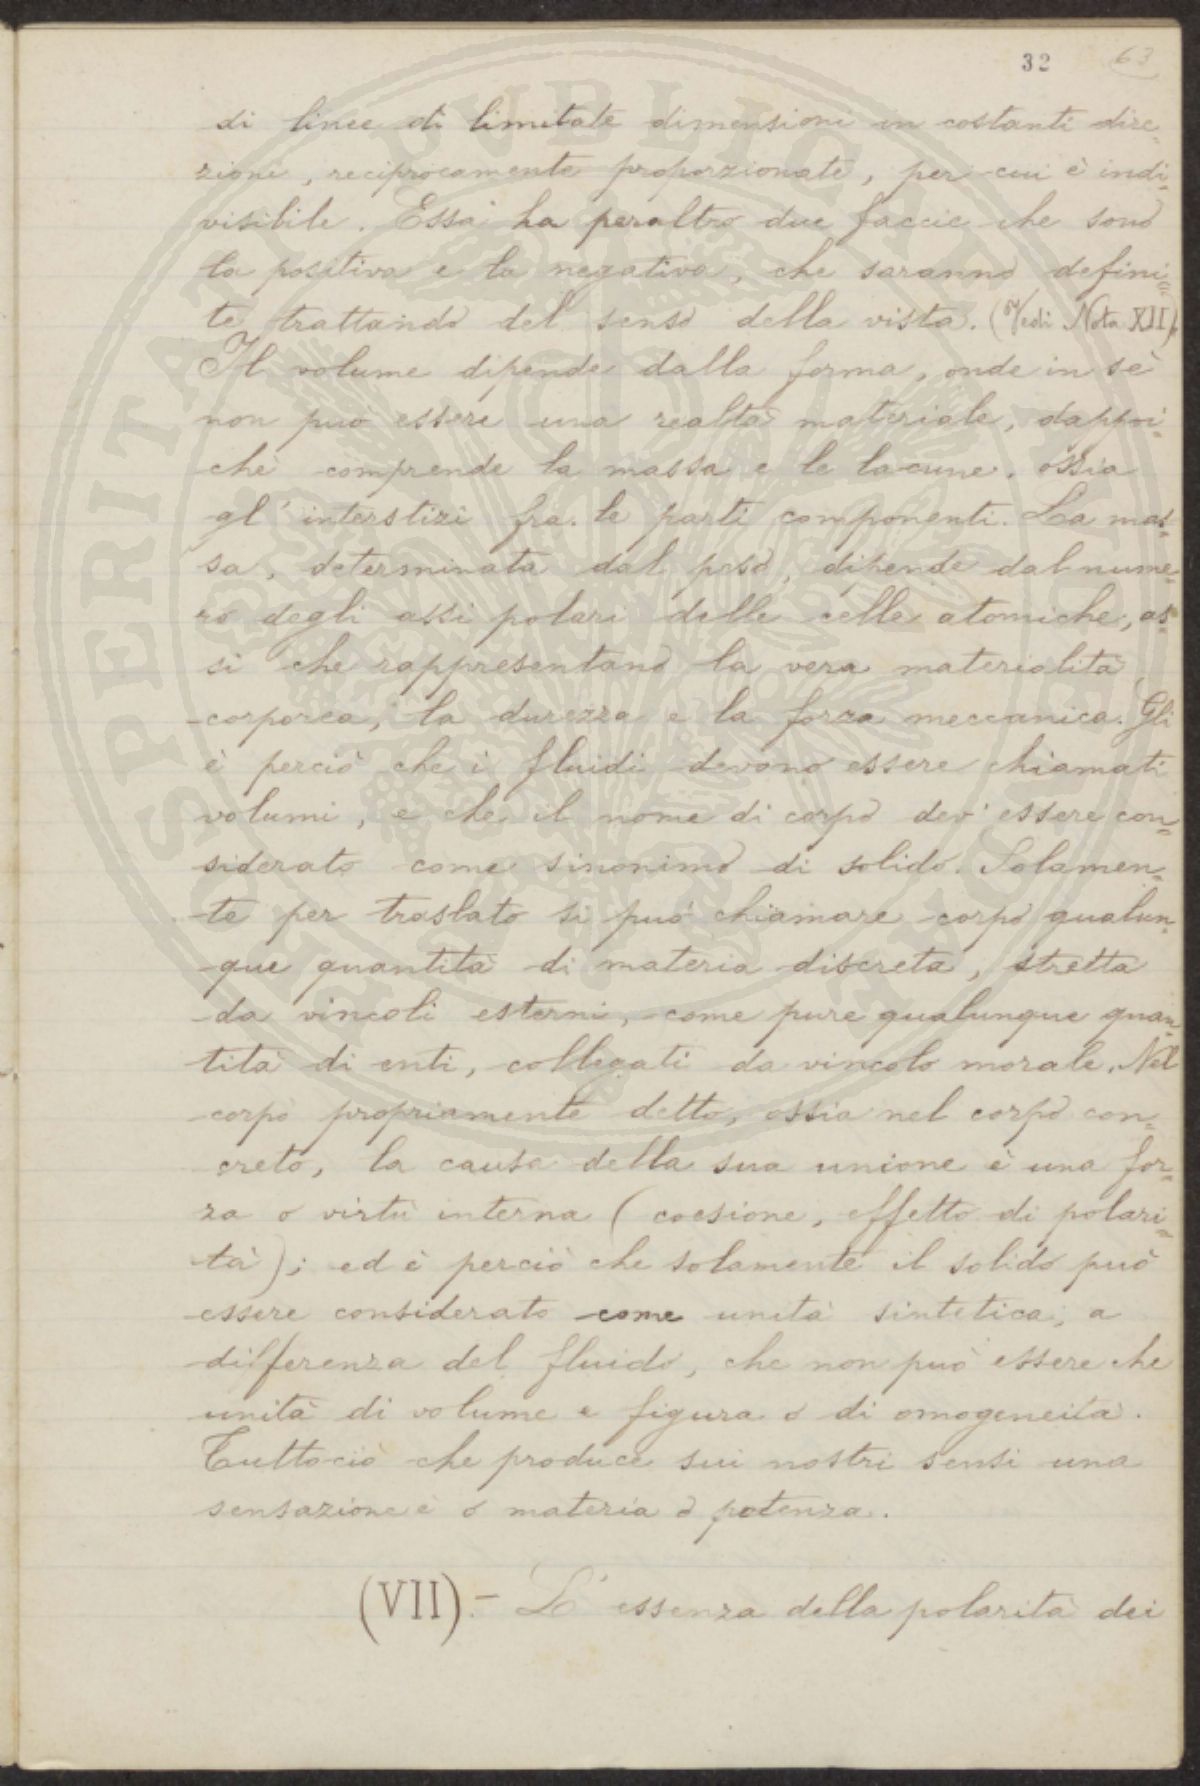 32 63
di linee di limitate dimensioni in costanti dire-
zioni, reciprocamente proporzionate, per cui è indi-
visibile. Essa ha peraltro due faccie che sono
la positiva e la negativa, che saranno defini=
te trattando del senso della vista. (Vedi Nota XII).
Il volume dipende dalla forma, onde in sè
non può essere una realtà materiale, dappoi-
chè comprende la massa e le lacune, ossia
gl'interstizi fra le parti componenti. La mas-
sa, determinata dal peso, dipende dal nume-
ro degli assi polari delle celle atomiche, as-
si che rappresentano la vera materialità
corporea, la durezza e la forza meccanica. Gli
è perciò che i fluidi devono essere chiamati
volumi, e che il nome di corpo dev'essere con=
siderato come sinonimo di solido. Solamen-
te per traslato si può chiamare corpo qualun-
que quantità di materia discreta, stretta
da vincoli esterni, come pure qualunque quan-
tità di enti, collegati da vincolo morale. Nel
corpo propriamente detto, ossia nel corpo con=
creto, la causa della sua unione è una for-
za o virtù interna (coesione, effetto di polari=
tà); ed è perciò che solamente il solido può
essere considerato come unità sintetica, a
differenza del fluido, che non può essere che
unità di volume e figura o di omogeneità.
Tuttociò che produce sui nostri sensi una
sensazione è o materia o potenza.
(VII).- L'essenza della polarità dei
PROSPERITATI PVBLICAE AVGENDAE